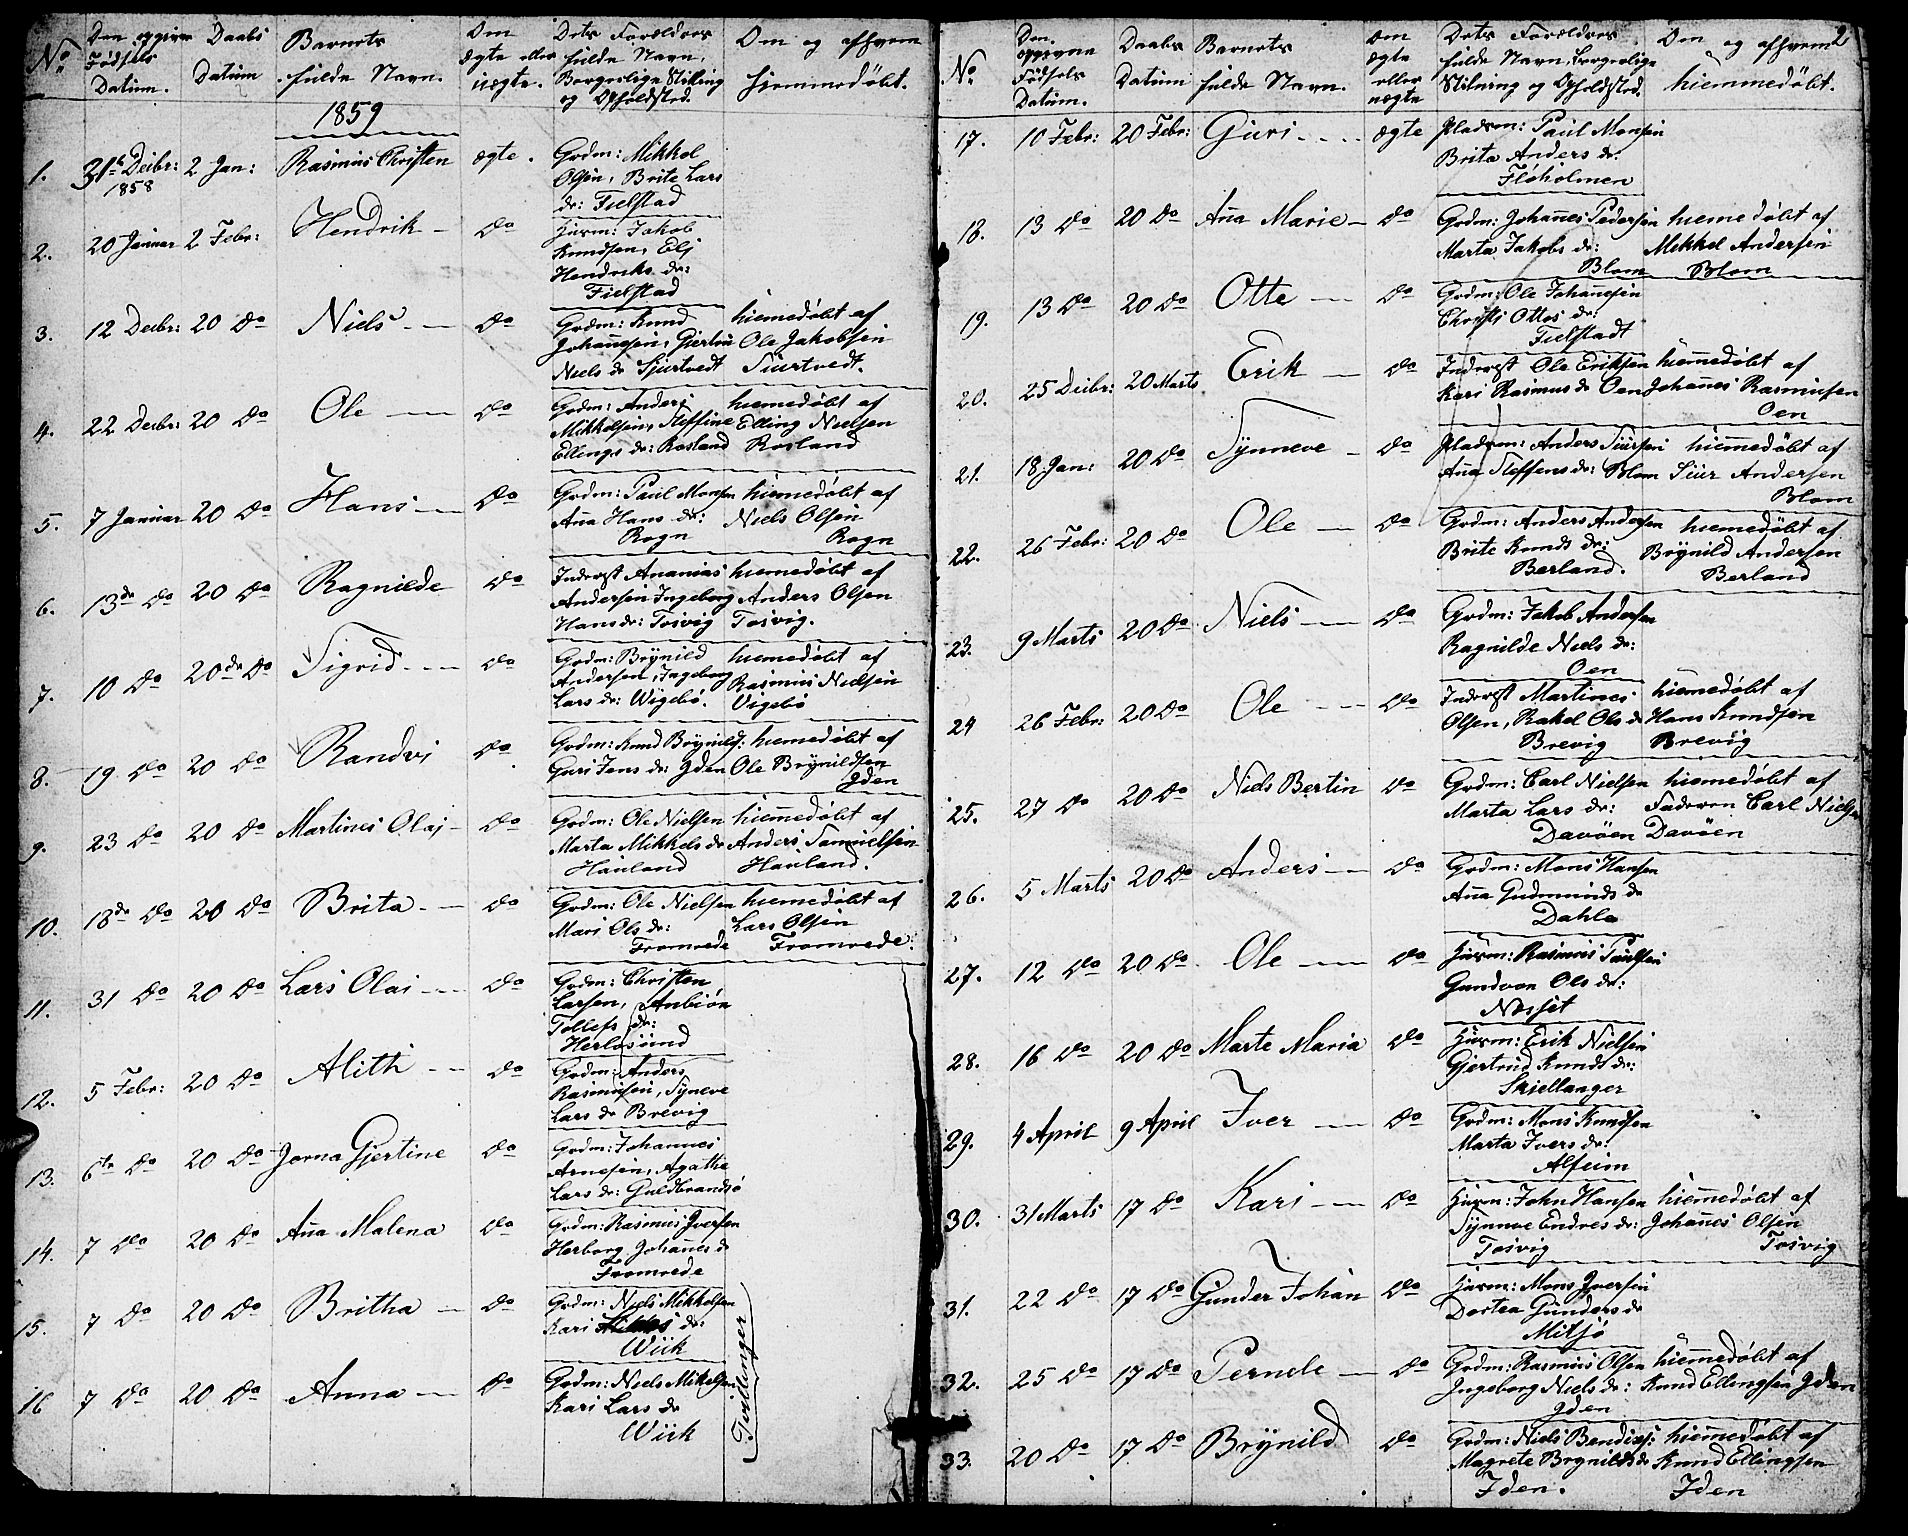 No.
Den opgivne
Fødsels
Datum.
Daabs
Datum
Barnets
fulde Navn.
Om
ægte eller
uægte.
Dets Forældres
fulde Navn,
Borgerlige Stilling
og Opholdsted.
Om og afhvem
hjemmedøbt.
1859
1. 31te Decbr: 1858 2 Jan: Rasmus Christen ægte. Grdm: Mikkel
Olsen, Brite Lars
dr: Fielstad
2. 20 Januar 2 Febr: Hendrik - do Huum: Jakob
Knudsen, Eli
Hendriks dr:
Fielstad
3. 12 Decbr: 20 do Niels - do Grdm: Knud hiemedøbt af
Johanesen, Giertrü Ole Jakobsen
Niels dr Sjurtvedt Siurtvedt.
4. 22 Decbr: 20 do Ole - do Grdm: Anders hiemedøbt af
Mikkelsen, Steffine Elling Nielsen
Ellings dr: Rosland Rosland
5. 7 Januar 20 do Hans - do Grdm: Paul Monsen hiemedøbt af
Ana Hans dr: Niels Olsen
Rogn Rogn
6. 13de do 20 do Ragnilde do Inderst Ananias hiemedøbt af
Andersen Ingeborg Anders Olsen
Hans dr: Tosvig Tosvig.
7. 10 do 20de do Sigrid - do Grdm: Brynild hiemedøbt af
Andersen, Ingeborg Rasmus Nielsen
Lars dr: Wigebö. Vigebö
8. 19 do 20 do Randvi do Grdm: Knud Brynilds: hiemedøbt af
Guri Jens dr: Yden Ole Brynildsen
Yden
9. 23 do 20 do Martines Olai - do Grdm: Ole Nielsen hiemedøbt af
Marta Mikkels dr Anders Samuelsen
Hauland Hauland.
10. 18de do 20 do Brita - do Grdm: Ole Nielsen hiemedøbt af
Mari Ols dr: Lars Olsen
Fromrede Fromrede.
11. 31 do 20 do Lars Olai - do Grdm: Christen
Larsen, Anbiör
Tollefs dr:
Herlosund
12. 5 Febr: 20 do Alithi - do Grdm: Anders
Rasmusen, Syneve
Lars dr Brevig
13. 6te do 20 do Jorna Gjertine do Grdm: Johannes
Arnesen, Agathe
Lars dr: Guldbrandsö
14. 7 do 20 do Ana Malena do Grdm: Rasmus Iversen
Herborg Johanes dr
Fromrede
15. 7 do 20 do Britha - do Grdm: Niels Mikkelsen
Kari dr:
Wiik
16 7 do 20 do Anna - do Grdm: Niels Mikelsen
Kari Lars dr
Wiik
Tvillinger
2
No.
Den
opgivne
Fødsels
Datum.
Daabs
Datum
Barnets
fulde Navn.
Om
ægte
eller
uægte
Dets Forældres
fulde Navn, Borgerlige
Stilning og Opholdsted.
Om og afhvem
hiemmedøbt.
17. 10 Febr: 20 Febr: Guri - - - ægte Pladsm: Paul Monsen
Brita Anders dr:
Floholmen
18. 13 do 20 do Ana Marie - do Grdm: Johanes Pedersen hiemedøbt af
Marta Jakobs dr: Mikkel Andersen
Blom Blom
19. 13 do 20 do Otte - do Grdm: Ole Johanesen
Christi Ottos dr:
Fielstadt
20. 25 Decbr: 20 Marts Erik - do Inderst Ole Eriksen hiemedøbt af
Kari Rasmus dr Oen Johanes Rasmusen
Oen
21. 18 Jan: 20 do Synneve - do Pladsm: Anders Siursen hiemedøbt af
Ana Steffens dr: Blom Siur Andersen
Blom
22. 26 Febr: 20 do Ole - do Grdm: Anders Andersen hiemedøbt af
Brite Knuds dr: Brynild Andersen
Berland. Berland
23. 9 Marts 20 do Niels - do Grdm: Jakob Andersen
Ragnilde Niels dr:
Oen
24 26 Febr: 20 do Ole - do Inderst Martines hiemedøbt af
Olsen, Rakel Ols dr Hans Knudsen
Brevig Brevig
25. 27 do 20 do Niels Bertin do Grdm: Carl Nielsen hiemedøbt af
Marta Lars dr: Faderen Carl Nielsen
Davöen Davöen
26. 5 Marts 20 do Anders - do Grdm: Mons Hansen
Ana Gudmunds dr
Dahle
27. 12 do 20 do Ole - do Huum: Rasmus Paulsen
Gundvor Ols dr:
Nesset
28. 16 do 20 do Marte Maria do Huum: Erik Nielsen
Gjertrud Knuds dr:
Skiellanger
29. 4 April 9 April Iver - do Grdm: Mons Knudsen
Marta Ivers dr:
Alfeim
30. 31 Marts 17 do Kari - do Huum: John Hansen hiemedøbt af
Synneve Endres dr: Johanes Olsen
Tosvig Tosvig
31. 22 do 17 do Gunder Johan do Huum: Mons Iversen
Dortea Gunders dr
Mitsjö
32. 25 do 17 do Pernele - do Grdm: Rasmus Olsen hiemedøbt af
Ingeborg Niels dr: Knud Ellingsen Yden
Yden
33. 20 do 17 do Brynild do Grdm: Niels Bendixs: hiemedøbt af
Magrete Brynilds dr Knud Ellingsen
Iden. Iden